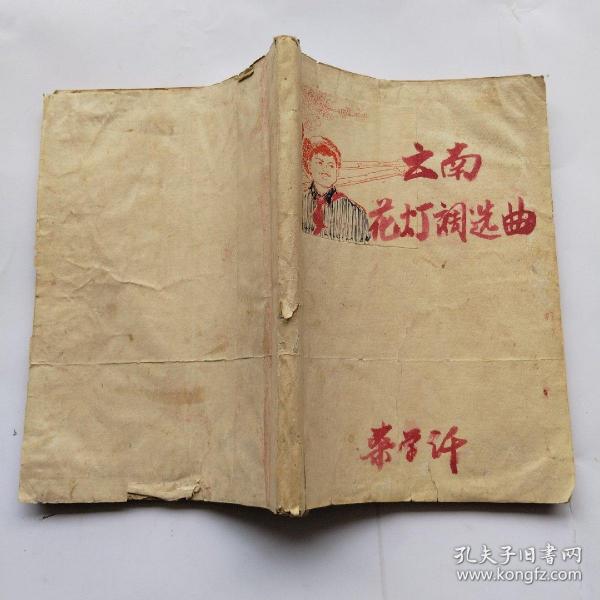 云南
花灯调选曲
桑学
孔夫子旧书网
www.kongfz.com